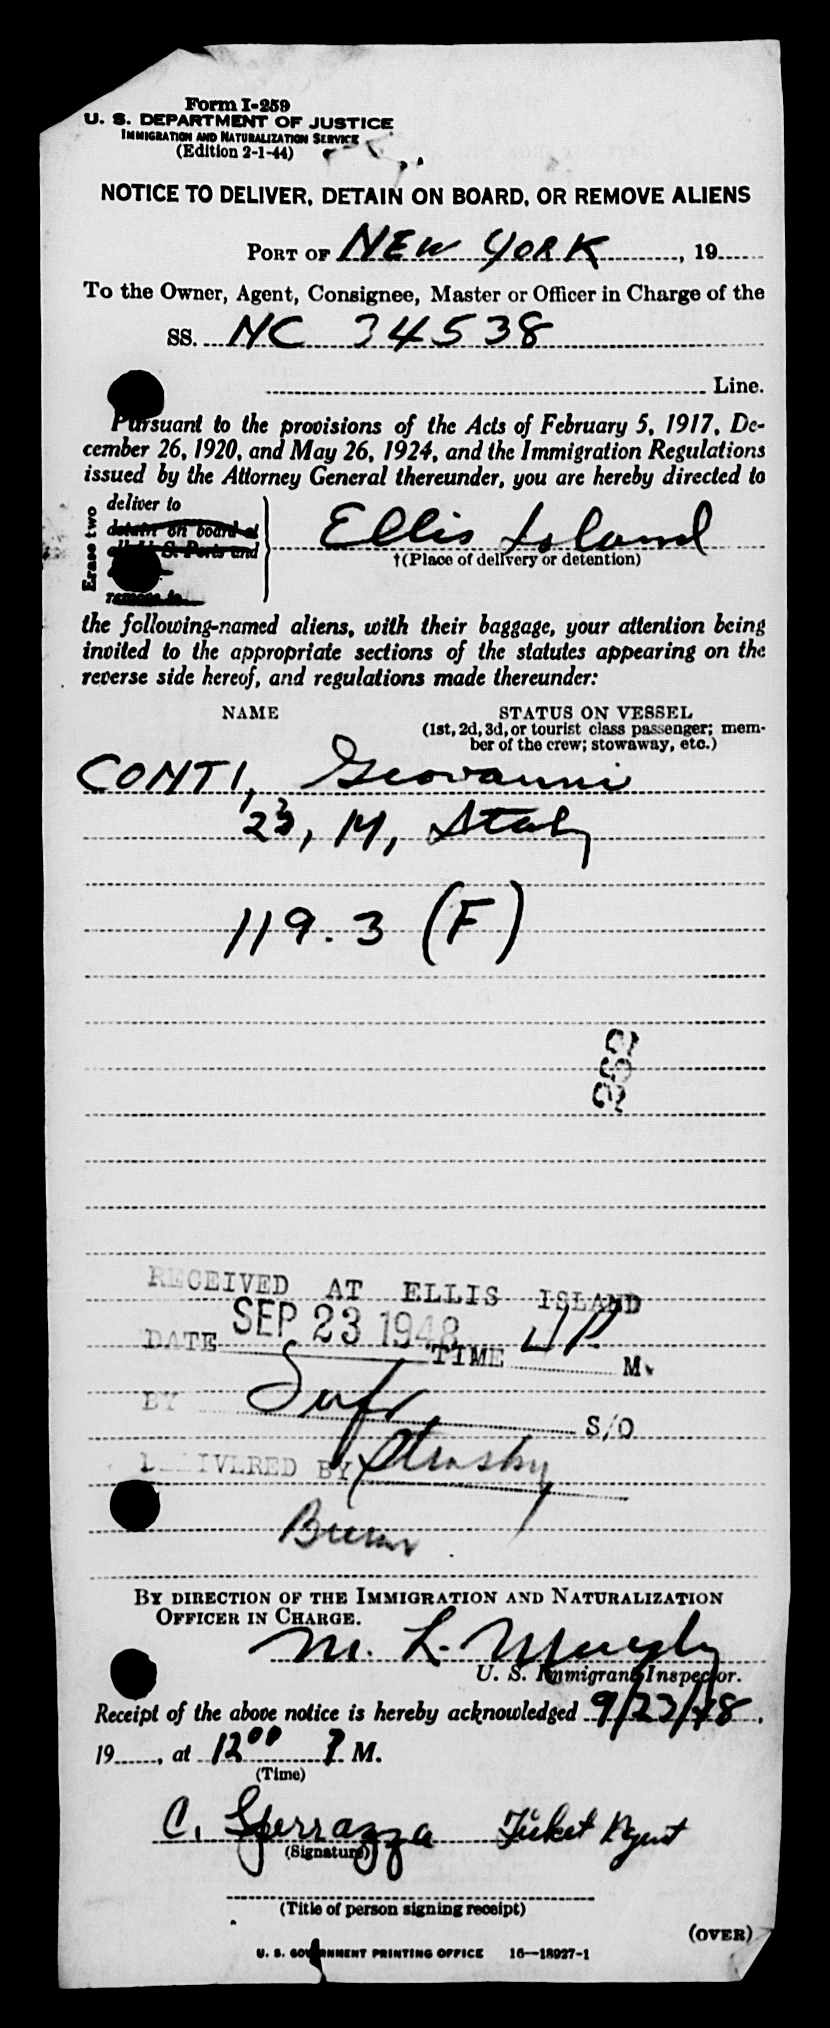 Form I-259
U. S. DEPARTMENT OF JUSTICE
IMMIGRATION AND NATURALIZATION SERVICE
(Edition 2-1-44)
NOTICE TO DELIVER, DETAIN ON BOARD, OR REMOVE ALIENS
PORT OF NEW YORK, 19
To the Owner, Agent, Consignee, Master or Officer in Charge of the
SS. NC 34538
Line.
Pursuant to the provisions of the Acts of February 5, 1917, De-
cember 26, 1920, and May 26, 1924, and the Immigration Regulations
issued by the Attorney General thereunder, you are hereby directed to
Erase two
deliver to
detain on board at
S. Ports and
remove to
Ellis Island
†(Place of delivery or detention)
the following-named aliens, with their baggage, your attention being
invited to the appropriate sections of the statutes appearing on the
reverse side hereof, and regulations made thereunder:
NAME STATUS ON VESSEL
(1st, 2d, 3d, or tourist class passenger; mem-
ber of the crew; stowaway, etc.)
CONTI, Giovanni
23, M, Italy
119.3 (F)
RECEIVED AT ELLIS ISLAND
DATE SEP 23 1948 TIME M.
BY S/O
DELIVERED BY
BY DIRECTION OF THE IMMIGRATION AND NATURALIZATION
OFFICER IN CHARGE.
M. L. Murphy
U. S. Immigrant Inspector.
Receipt of the above notice is hereby acknowledged 9/23/48,
19, at 12 00 P M.
(Time)
C. Sferrazza Ticket Agent
(Signature)
(Title of person signing receipt)
(OVER)
U. S. GOVERNMENT PRINTING OFFICE 16—18927-1